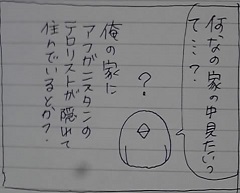 何、なの家の中見たいって
て…?
?
俺の家に
アフガニスタンの
テロリストが隠れて
住んでいるとか?